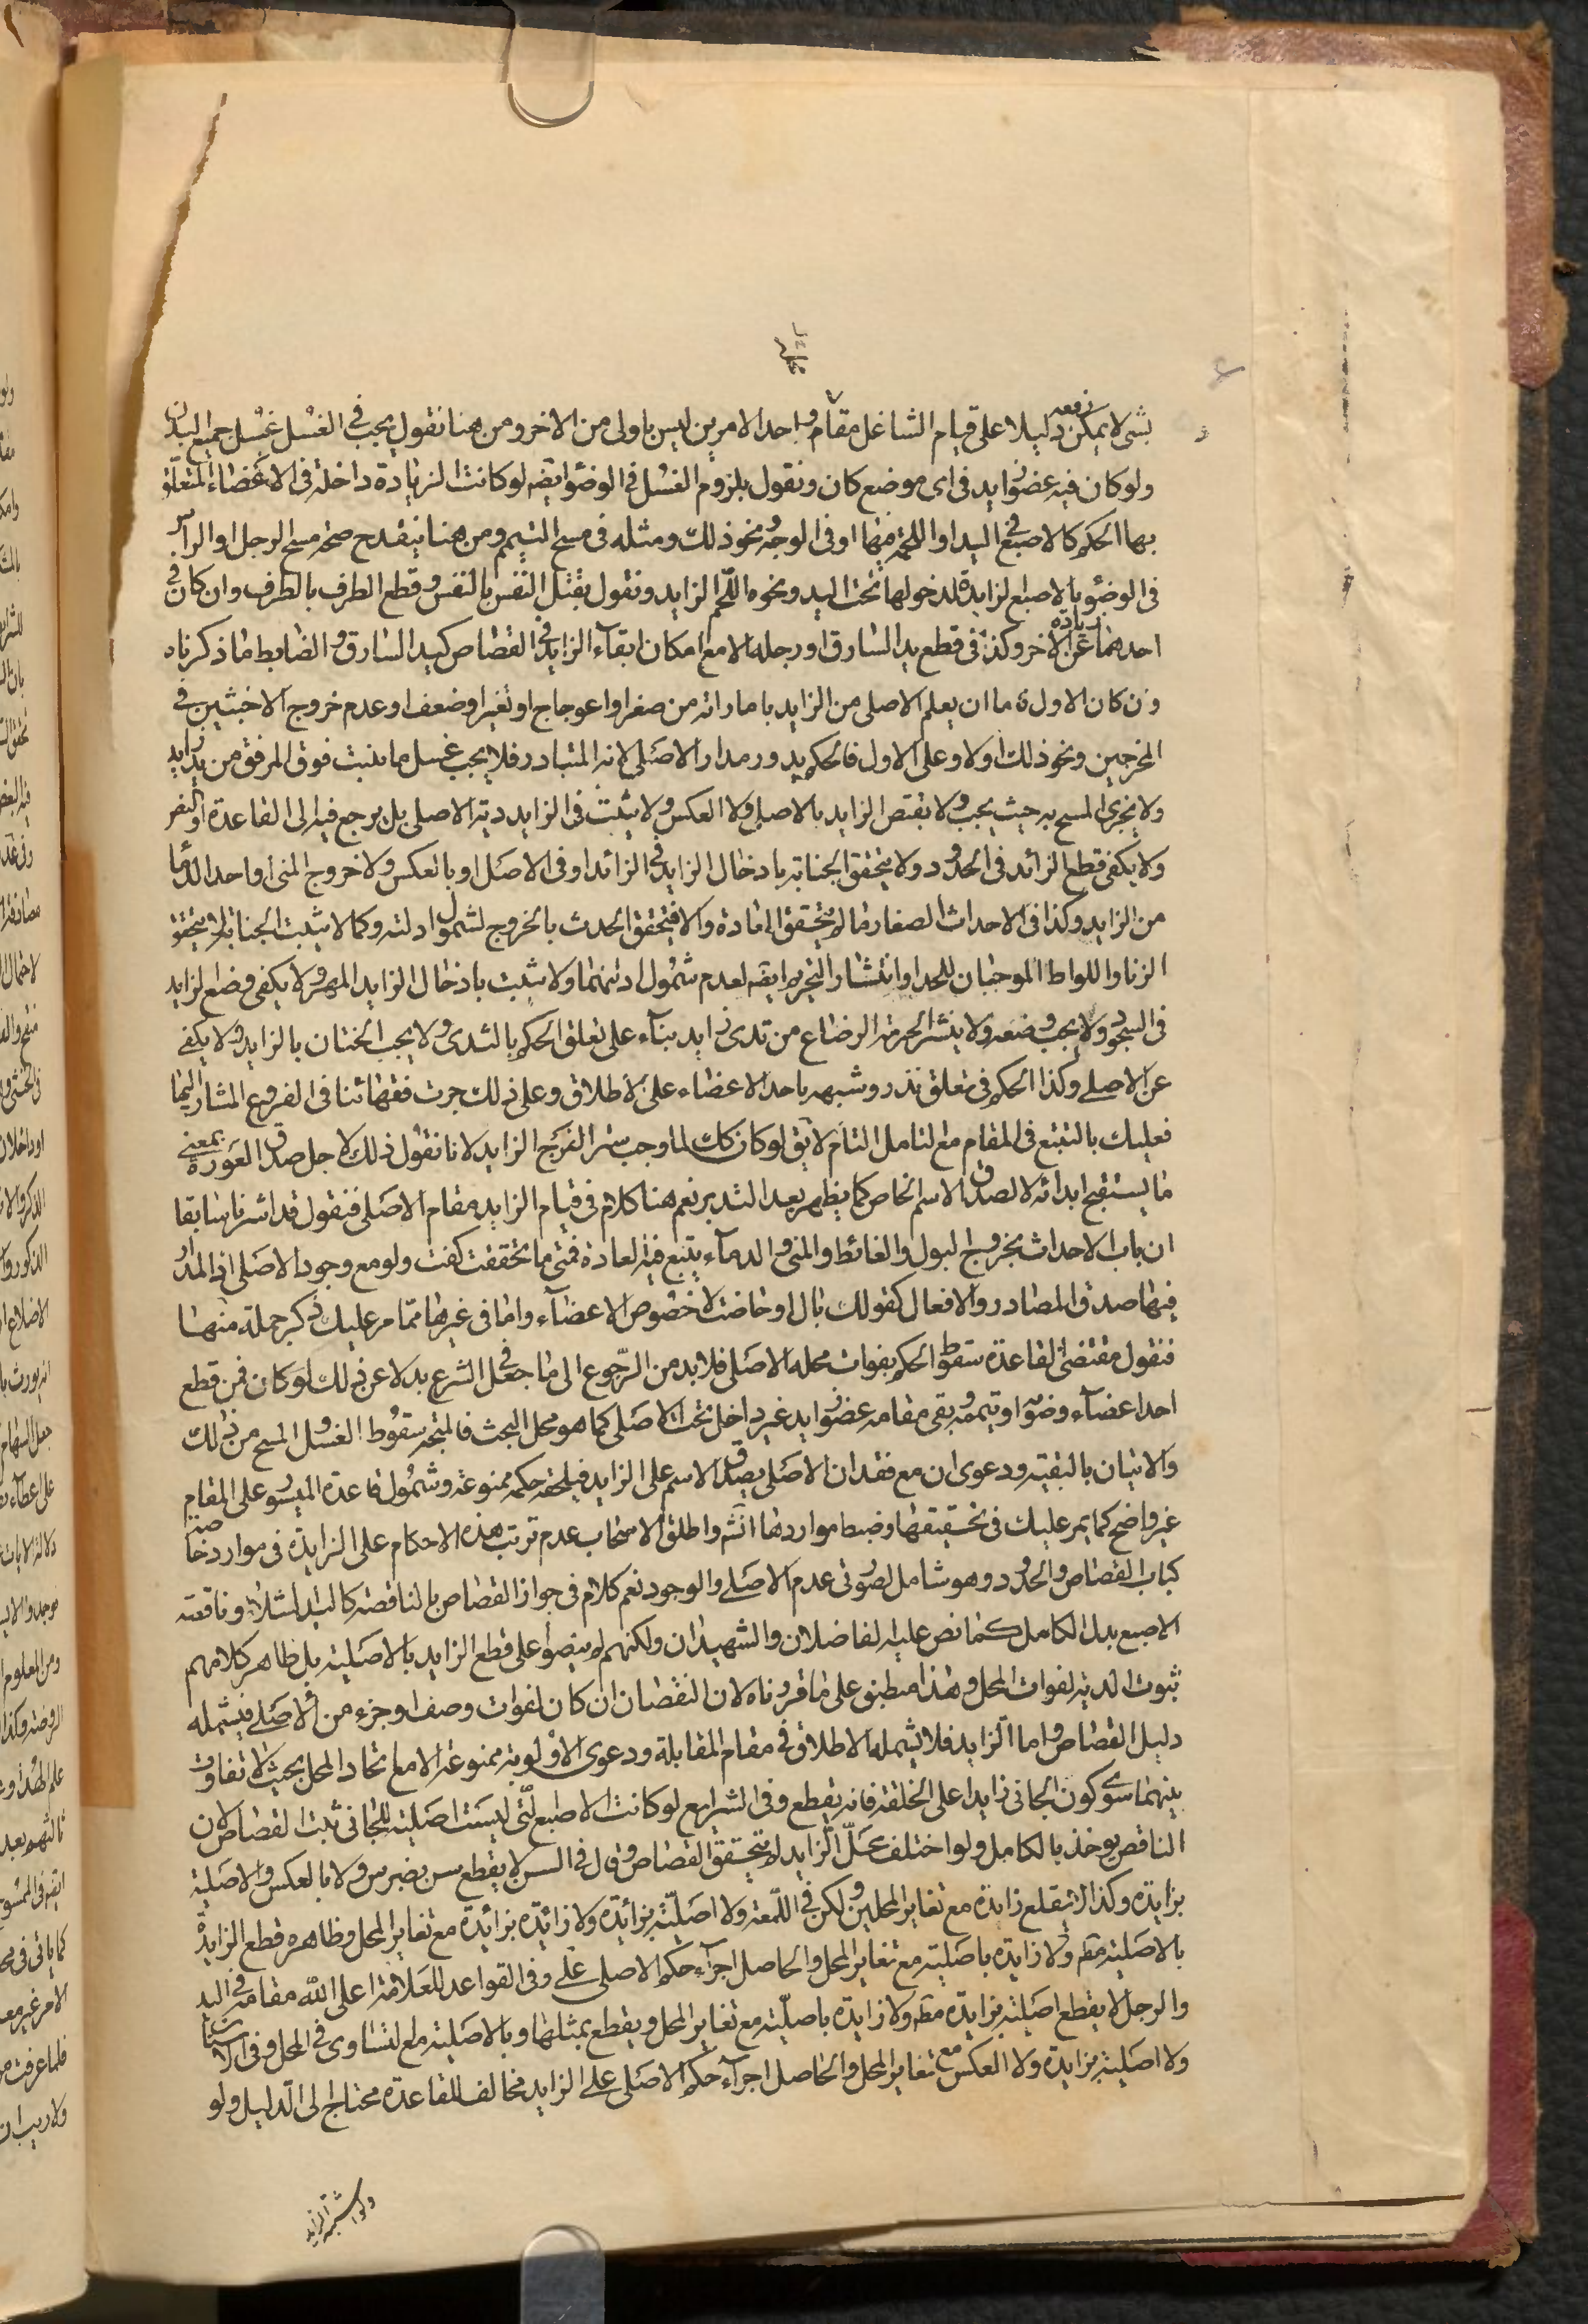 بشئ لا يمكن دفعه دليلا على قيام الشاغل مقامه واحد الامرين ليس باولى من الاخر ومن هنا نقول يجب في الغسل غسل جميع البدن
ولو كان فيه عضو زايد في اى موضع كان ونقول بلزوم الغسل في الوضوء ايضه لو كانت الزيادة داخلة في الاعضاء المتعلق
بها الحكم كالاصبع في اليد او اللحمة منها او في الوجه ونحو ذلك ومثله في مسح التيمم ومن هنا ينقدح صحة مسح الرجل او الراس
في الوضوء بالاصبع الزايدة لدخولها تحت اليد ونحوه اللحم الزايد ونقول بقتل النفس بالنفس وقطع الطرف بالطرف وان كان في
احدهما زيادة عن الاخر وكذا في قطع يد السارق او رجله الا مع امكان ابقاء الزايد في القصاص كيد السارق والضابط ما ذكرناه
وان كان الاول فاما ان يعلم الاصلى من الزايد باماراته من صغر او اعوجاج او تغير او ضعف او عدم خروج الاخبثين في
المخرجين ونحو ذلك اولا وعلى الاول فالحكم يدور مدار الاصلى لانه المتبادر فلا يجب غسل ما ينبت فوق المرفق من يد زايد
ولا يجزى المسح به حيث يجب ولا يقتص الزايد بالاصلى ولا العكس ولا يثبت في الزايد دية الاصلى بل يرجع فيه الى القاعدة او النص
ولا يكفى قطع الزائد في الحدود ولا يتحقق الجنابة بادخال الزايد في الزائد او في الاصل او بالعكس ولا خروج المنى او احد الدما
من الزايد وكذا في الاحداث الصغار ما لم يتحقق العادة والا فيتحقق الحدث بالخروج لشمول ادلته وكما لا يثبت الجنابة لم يتحقق
الزنا واللواط الموجبان للحد او انتشار التحريم ايضه لعدم شمول ادلتهما ولا يثبت بادخال الزايد المهر ولا يكفى وضع الزايد
في السجود ولا يجب وضعه ولا ينشر الحرمة الرضاع من ثدى زايد بناء على تعلق الحكم بالثدى ولا يجب الختان بالزايد ولا يكفى
عن الاصلى وكذا الحكم في تعلق نذر وشبهه باحد الاعضاء على الاطلاق وعلى ذلك جرت فقهائنا في الفروع المشار اليها
فعليك بالتتبع في المقام مع التامل التام لا يق لو كان كك لما وجب ستر الفرج الزايد لانا نقول ذلك لاجل صدق العورة بمعنى
ما يستقبح ابدائه لا لصدق الاسم الخاص كما يظهر بعد التدبر نعم هنا كلام في قيام الزايد مقام الاصلى فنقول قد اشرنا سابقا
ان باب الاحداث بخروج البول والغائط والمنى والدماء يتبع فيه العادة فمتى ما تحققت كفت ولو مع وجود الاصلى اذ المدار
فيها صدق المصادر والافعال كقولك بال او حاضت لا خصوص الاعضاء واما في غيرها مما مر عليك ذكر جملة منها
فنقول مقتضى القاعدة سقوط الحكم بفوات محله الاصلى فلا بد من الرجوع الى ما جعل في الشرع بدلا عن ذلك لو كان فمن قطع
احد اعضاء وضوئه او تيممه وبقى مقامه عضو زايد غير داخل تحت الاصلى كما هو محل البحث فالمتجه سقوط الغسل والمسح من ذلك
والاتيان بالبقية ودعوى ان مع فقدان الاصلى يصدق الاسم على الزايد فيلحقه حكمه ممنوعة وشمول قاعدة الميسور على المقام
غير واضح كما يمر عليك في تحقيقها وضبط مواردها انشه واطلق الاصحاب عدم ترتب هذه الاحكام على الزايدة في موارد خاصة
كباب القصاص والحدود وهو شامل لصورتى عدم الاصلى والوجود نعم كلام في جواز القصاص بالناقصة كاليد الشلاء وناقصة
الاصبع بدل الكامل كما نص عليه الفاضلان والشهيدان ولكنهم لم ينصوا على قطع الزايد بالاصلية بل ظاهر كلامهم
ثبوت الدية لفوات المحل وهذا منطبق على ما قررناه لان النقصان ان كان لفوات وصف او جزء من الاصلى فيشمله
دليل القصاص واما الزايد فلا يشمله الاطلاق في مقام المقابلة ودعوى الاولوية ممنوعة الا مع اتحاد المحل بحيث لا تفاوت
بينهما سوى كون الجانى زايدا على الخلقة فانه يقطع وفي الشرايع لو كانت الاصبع التى ليست اصلية للجانى ثبت القصاص لان
الناقص يوخذ بالكامل ولو اختلف محل الزايد لم يتحقق القصاص وقال في السن لا يقطع سن بضرس ولا بالعكس ولا اصلية
بزايدة وكذا لا يقلع زايدة مع تغاير المحلين ولكن في اللمعة ولا اصلية بزائدة ولا زائدة بزائدة مع تغاير المحل وظاهره قطع الزايدة
بالاصلية مطه ولا زايدة باصلية مع تغاير المحل والحاصل اجراء حكم الاصلى على وفي القواعد للعلامة اعلى الله مقامه في اليد
والرجل لا يقطع اصلية بزايدة مطه ولا زايدة باصلية مع تغاير المحل ويقطع بمثلها وبالاصلية مع التساوى في المحل وفي الاسنان
ولا اصلية بزايدة ولا العكس مع تغاير المحل والحاصل اجراء حكم الاصلى على الزايد مخالف للقاعدة محتاج الى الدليل ولو
ولو اشتبه الزايد